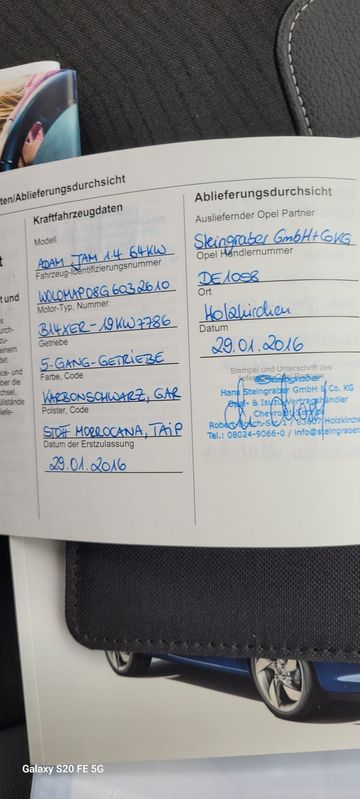 ten/Ablieferungsdurchsicht
Kraftfahrzeugdaten
Modell
ADAM JAM 1.4 64KW
Fahrzeug-Identifizierungsnummer
W0L0MAP08G6032610
Motor-Typ, Nummer
B14XER-19KW7786
Getriebe
5-GANG-GETRIEBE
Farbe, Code
KARBONSCHWARZ, GAR
Polster, Code
STOFF MORROCANA, TAIP
Datum der Erstzulassung
29.01.2016
Ablieferungsdurchsicht
Ausliefernder Opel Partner
Steingraber GmbH+CoKG
Opel Händlernummer
DE1058
Ort
Holzkirchen
Datum
29.01.2016
Stempel und Unterschrift des
Hans Steingraber GmbH & Co. KG
Opel- & Isuzu-Vertragshändler
Chevrolet
Robert-Bosch-Str. 1 / 83607 Holzkirchen
Tel.: 08024-9066-0 / info@steingraber
Galaxy S20 FE 5G